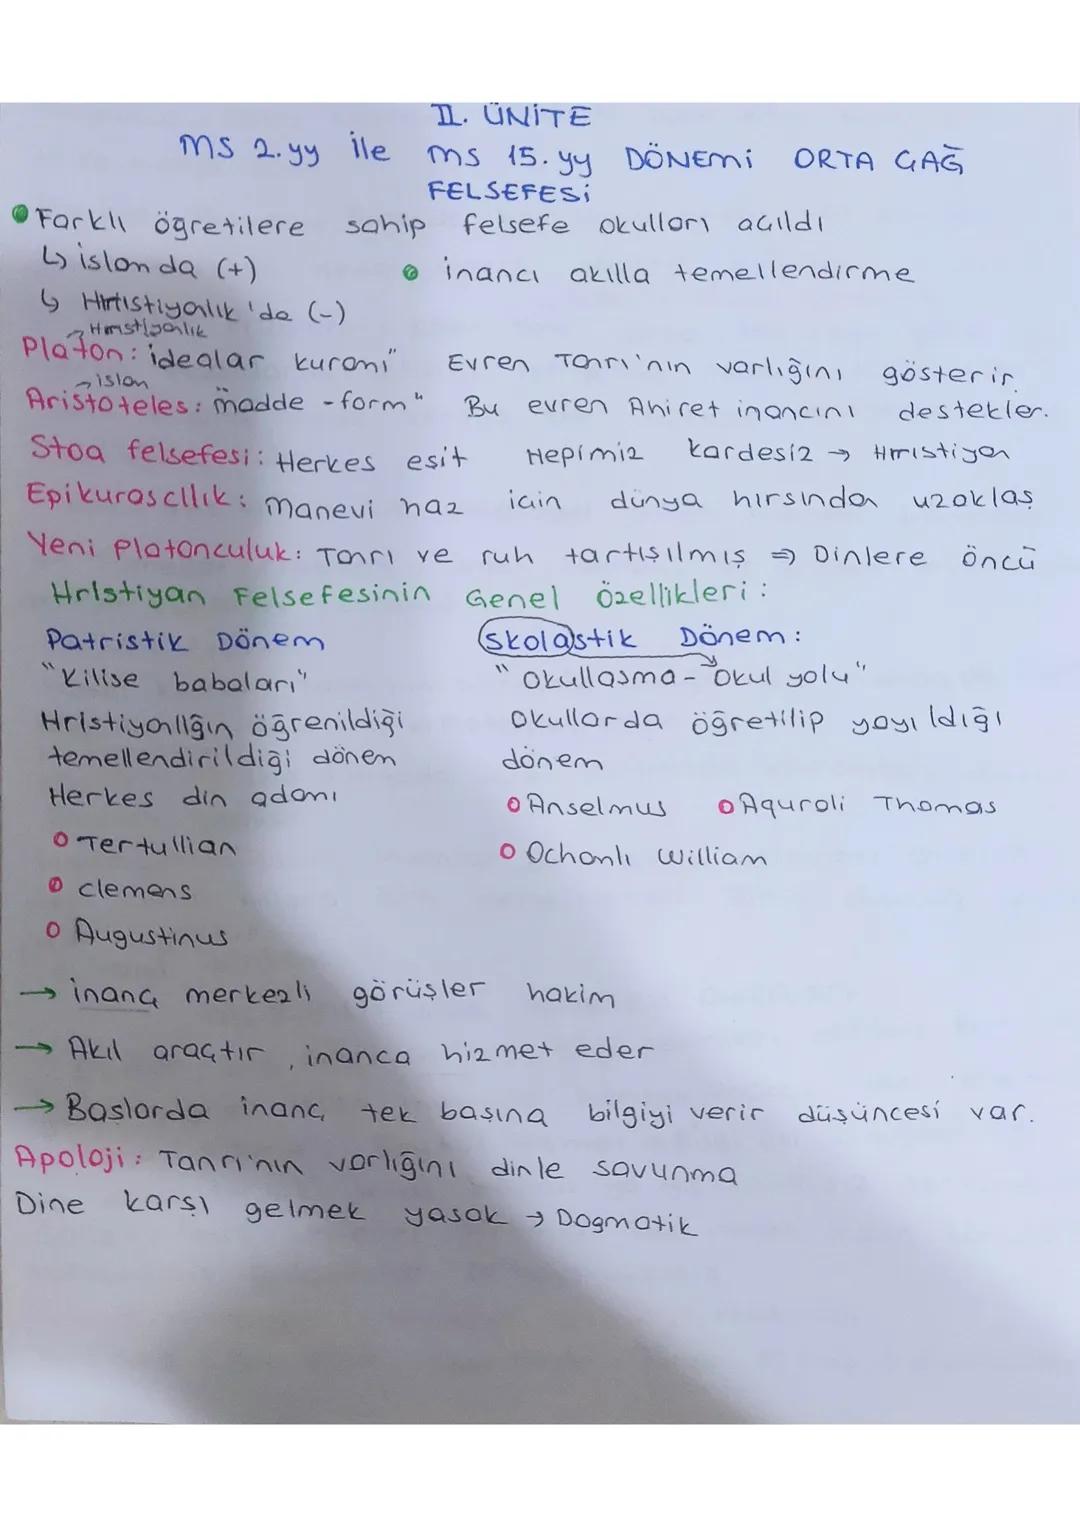 II. ÜNİTE
MS 2.yy ile MS 15.yy DÖNEMİ ORTA ÇAĞ
FELSEFESİ
Farklı öğretilere sahip felsefe okulları açıldı
↳ islamda (+)
inancı akılla temellendirme
↳ Hristiyanlık'da (-)
→ Hristiyanlık
Platon: idealar kuramı" Evren Tanrı'nın varlığını gösterir.
→ islam
Aristoteles: "madde - form" Bu evren Ahiret inancını destekler.
Stoa felsefesi: Herkes eşit Hepimiz kardeşiz → Hristiyan
Epikurosçılık: Manevi haz için dünya hırsından uzaklaş
Yeni Platonculuk: Tanrı ve ruh tartışılmış ⇒ Dinlere öncü
Hristiyan Felsefesinin Genel Özellikleri:
Patristik Dönem
"Kilise babaları"
Hristiyanlığın öğrenildiği
temellendirildiği dönem
Herkes din adamı
Tertullian
Clemens
Augustinus
Skolastik Dönem:
"Okullaşma - Okul yolu"
Okullarda öğretilip yayıldığı
dönem
Anselmus
Aquroli Thomas
Ochamlı William
→ inanç merkezli görüşler hakim
→ Akıl araçtır, inanca hizmet eder
→ Başlarda inanç tek başına bilgiyi verir düşüncesi var.
Apoloji: Tanrı'nın varlığını dinle savunma
Dine karşı gelmek yasak → Dogmatik